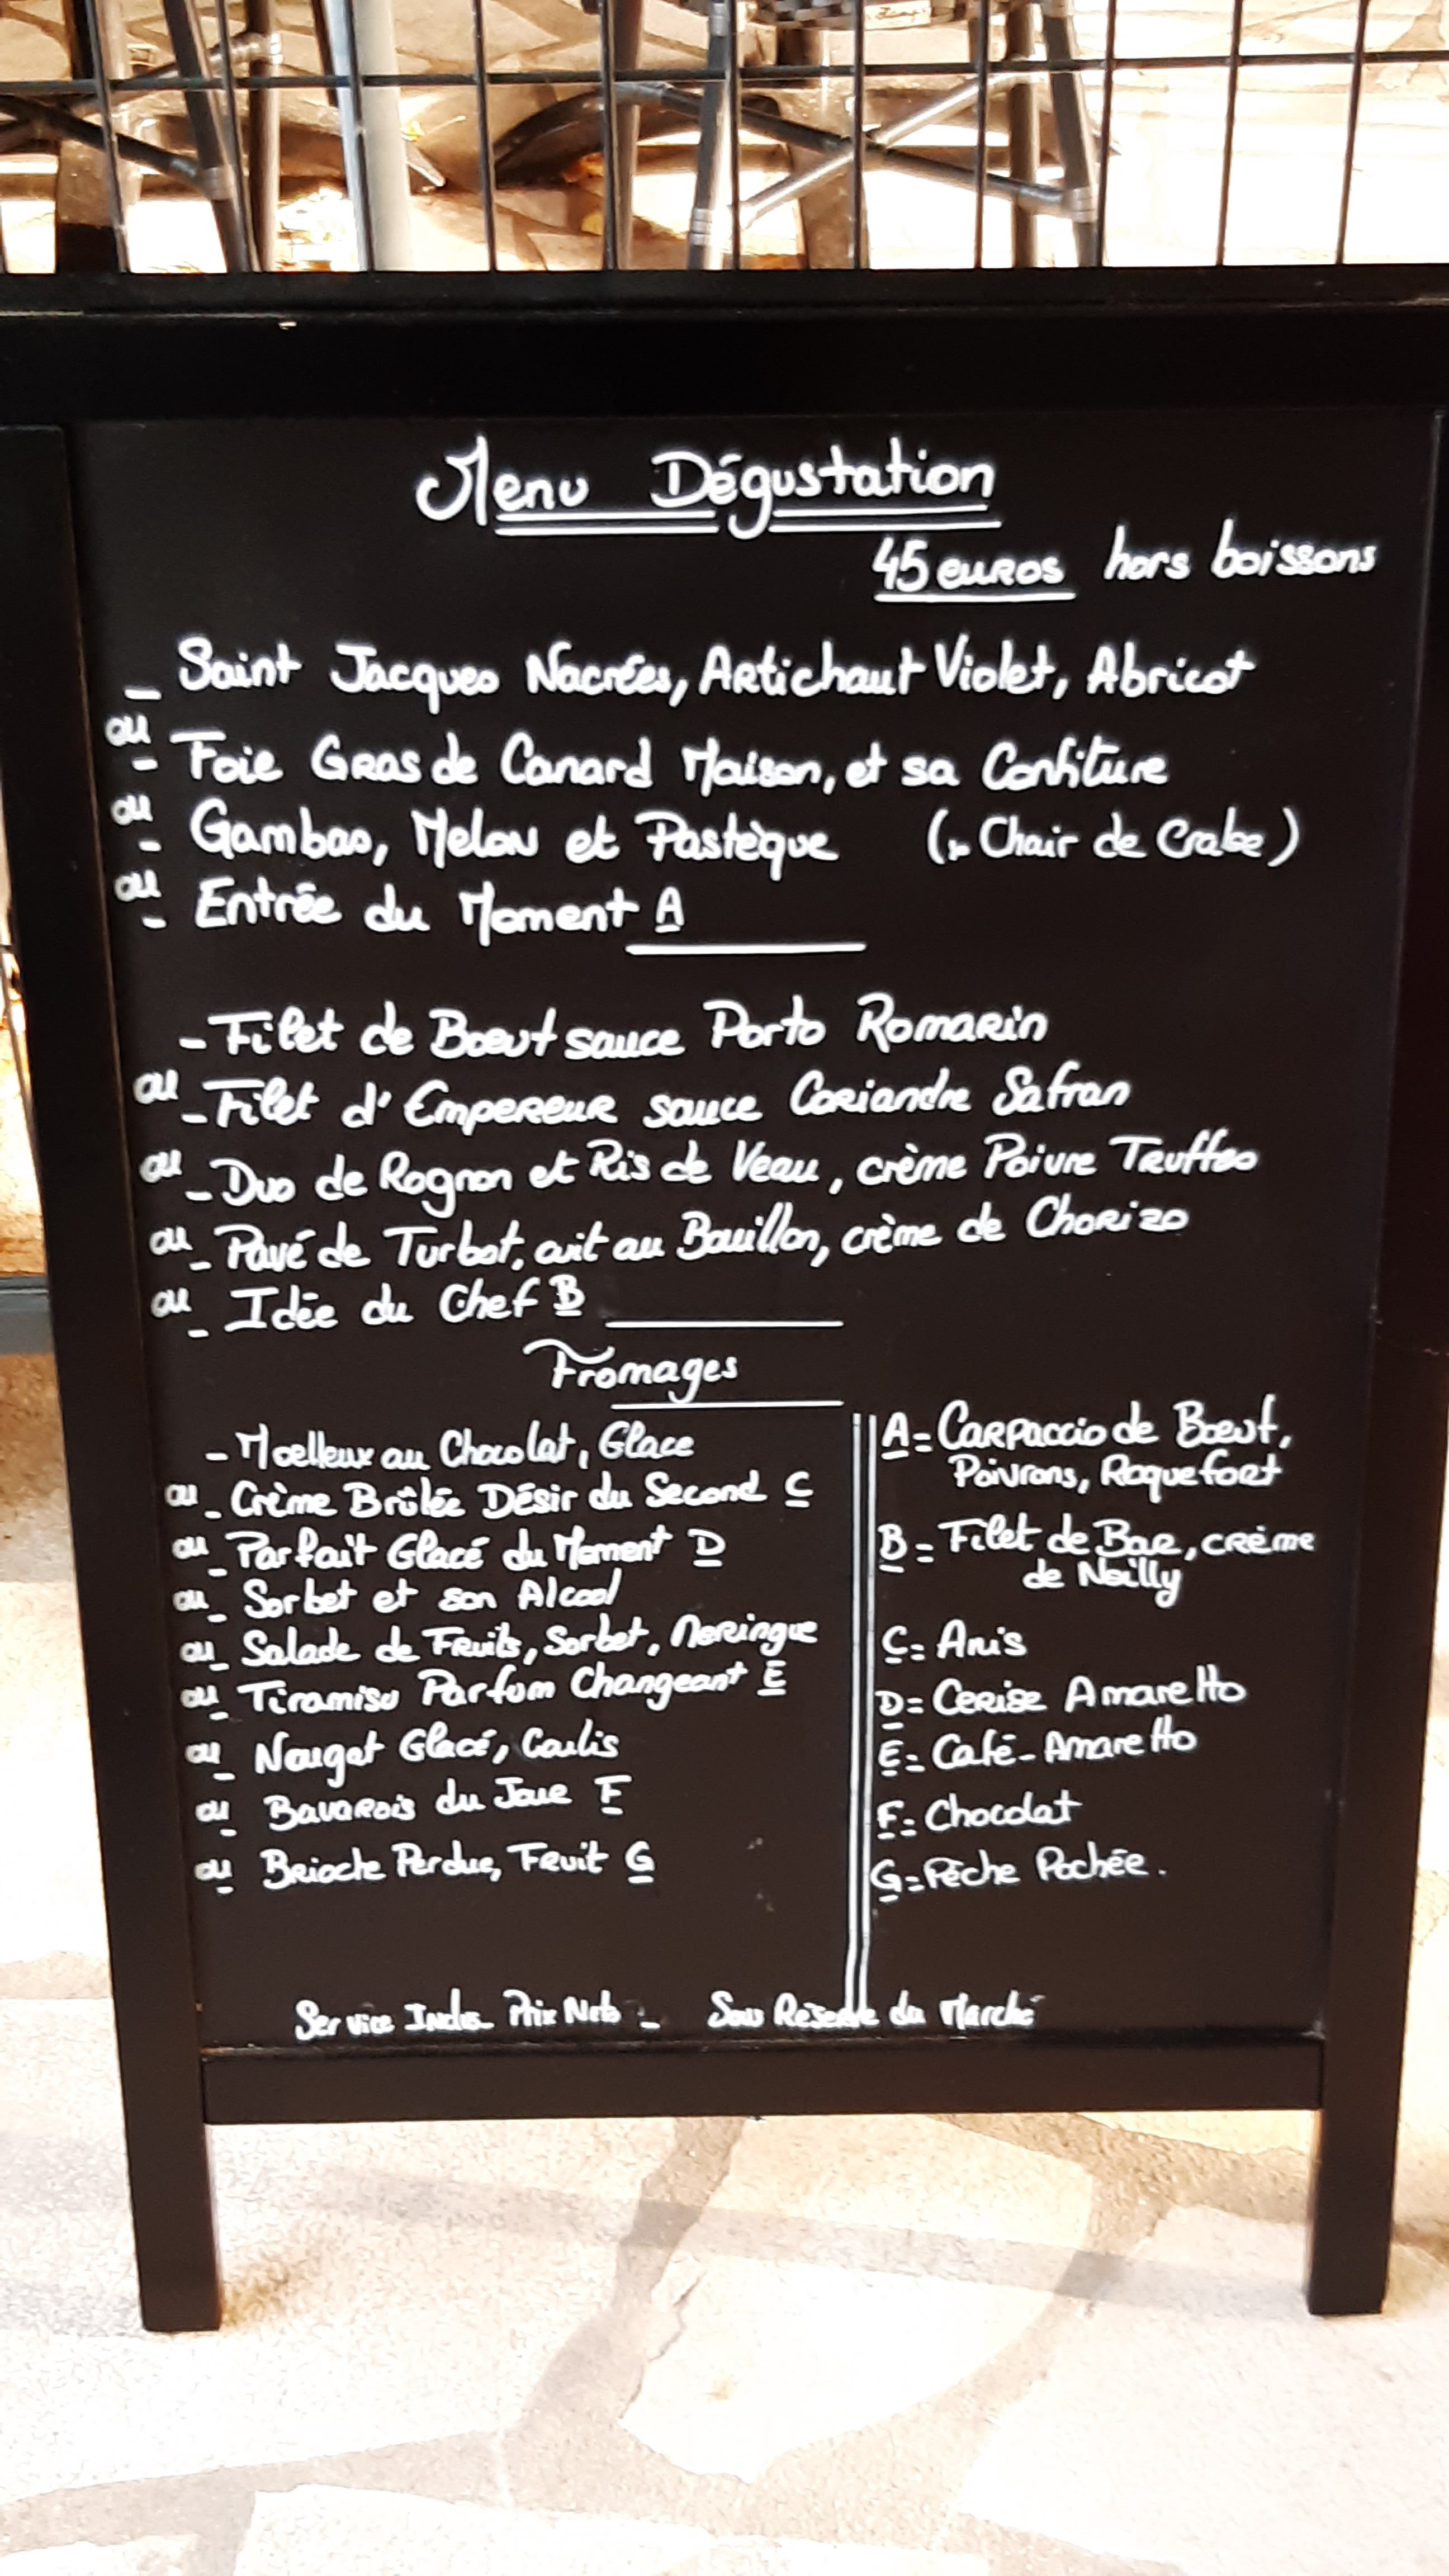 Menu Dégustation
45 euros hors boissons
_ Saint Jacques Nacrées, Artichaut Violet, Abricot
ou
- Foie Gras de Canard Maison, et sa Confiture
ou
- Gambas, Melon et Pastèque (Chair de Crabe)
ou
- Entrée du Moment A
- Filet de Bœuf sauce Porto Romarin
ou - Filet d'Empereur sauce Coriandre Safran
ou - Duo de Rognon et Ris de Veau, crème Poivre Truffes
ou - Pavé de Turbot, cuit au Bouillon, crème de Chorizo
ou - Idée du Chef B
Fromages
- Moelleux au Chocolat, Glace
ou - Crème Brûlée Désir du Second C
ou - Parfait Glacé du Moment D
ou - Sorbet et son Alcool
ou - Salade de Fruits, Sorbet, Meringue
ou - Tiramisu Parfum Changeant E
ou - Nougat Glacé, Coulis
ou - Bavarois du Jour F
ou - Brioche Perdue, Fruit G
A = Carpaccio de Bœuf,
Poivrons, Roquefort
B = Filet de Bar, crème
de Noilly
C = Anis
D = Cerise Amaretto
E = Café-Amaretto
F = Chocolat
G = Pêche Pochée.
Service Inclus Prix Nets - Sous Réserve du Marché